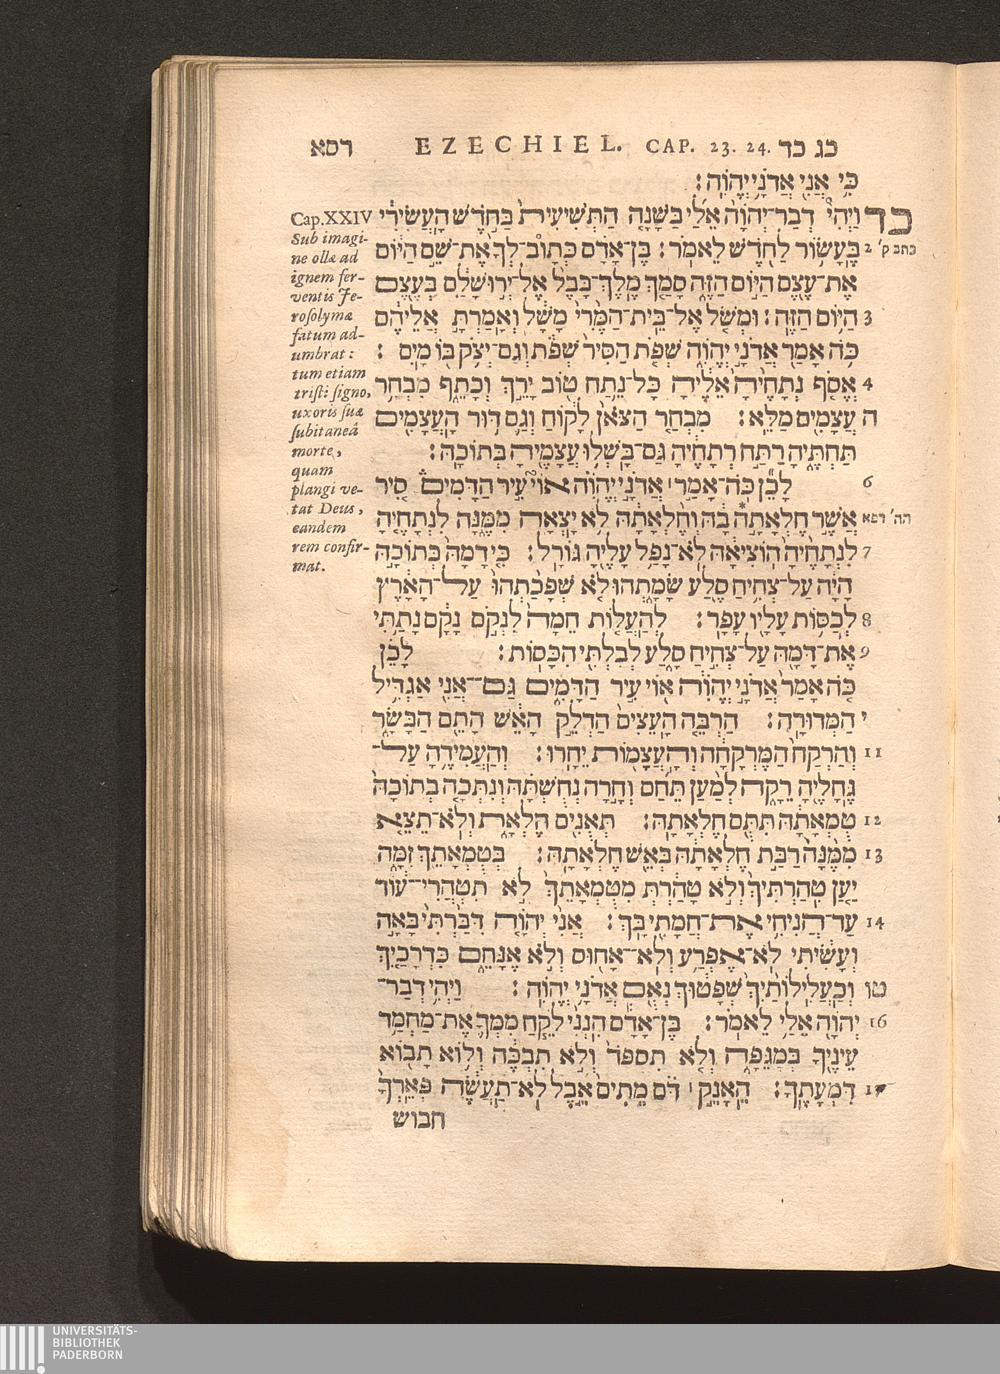 רסא EZECHIEL. CAP. 23. 24. כג כד
כִּי אֲנִי אֲדֹנָי יֱהֹוִה׃
כד וַיְהִי דְבַר־יְהוָה אֵלַי בַּשָּׁנָה הַתְּשִׁיעִית בַּחֹדֶשׁ הָעֲשִׂירִי
בֶּעָשׂוֹר לַחֹדֶשׁ לֵאמֹר׃ בֶּן־אָדָם כְּתָוב־לְךָ אֶת־שֵׁם הַיּוֹם 2 כתב ק'
אֶת־עֶצֶם הַיּוֹם הַזֶּה סָמַךְ מֶלֶךְ־בָּבֶל אֶל־יְרוּשָׁלִַם בְּעֶצֶם
הַיּוֹם הַזֶּה׃ וּמְשֹׁל אֶל־בֵּית־הַמֶּרִי מָשָׁל וְאָמַרְתָּ אֲלֵיהֶם 3
כֹּה אָמַר אֲדֹנָי יֱהֹוִה שְׁפֹת הַסִּיר שְׁפֹת וְגַם־יְצֹק בּוֹ מָיִם׃
אֱסֹף נְתָחֶיהָ אֵלֶיהָ כָּל־נֵתַח טוֹב יָרֵךְ וְכָתֵף מִבְחַר 4
עֲצָמִים מַלֵּא׃ מִבְחַר הַצֹּאן לָקוֹחַ וְגַם דּוּר הָעֲצָמִים ה
תַּחְתֶּיהָ רַתַּח רְתָחֶיהָ גַּם־בָּשְׁלוּ עֲצָמֶיהָ בְּתוֹכָהּ׃
לָכֵן כֹּה־אָמַר אֲדֹנָי יֱהֹוִה אוֹי עִיר הַדָּמִים סִיר 6
אֲשֶׁר חֶלְאָתָה בָהּ וְחֶלְאָתָהּ לֹא יָצְאָה מִמֶּנָּה לִנְתָחֶיהָ
לִנְתָחֶיהָ הוֹצִיאָהּ לֹא־נָפַל עָלֶיהָ גּוֹרָל׃ כִּי דָמָהּ בְּתוֹכָהּ 7
הָיָה עַל־צְחִיחַ סֶלַע שָׂמָתְהוּ לֹא שְׁפָכַתְהוּ עַל־הָאָרֶץ
לְכַסּוֹת עָלָיו עָפָר׃ לְהַעֲלוֹת חֵמָה לִנְקֹם נָקָם נָתַתִּי 8
אֶת־דָּמָהּ עַל־צְחִיחַ סָלַע לְבִלְתִּי הִכָּסוֹת׃ לָכֵן 9
כֹּה אָמַר אֲדֹנָי יֱהֹוִה אוֹי עִיר הַדָּמִים גַּם־אֲנִי אַגְדִּיל
הַמְּדוּרָה׃ הַרְבֵּה הָעֵצִים הַדְלֵק הָאֵשׁ הָתֵם הַבָּשָׂר י
וְהַרְקַח הַמֶּרְקָחָה וְהָעֲצָמוֹת יֵחָרוּ׃ וְהַעֲמִידֶהָ עַל־ 11
גֶּחָלֶיהָ רֵקָה לְמַעַן תֵּחַם וְחָרָה נְחֻשְׁתָּהּ וְנִתְּכָה בְתוֹכָהּ
טֻמְאָתָהּ תִּתֻּם חֶלְאָתָהּ׃ תְּאֻנִים הֶלְאָת וְלֹא־תֵצֵא 12
מִמֶּנָּה רַבַּת חֶלְאָתָהּ בְּאֵשׁ חֶלְאָתָהּ׃ בְּטֻמְאָתֵךְ זִמָּה 13
יַעַן טִהַרְתִּיךְ וְלֹא טָהַרְתְּ מִטֻּמְאָתֵךְ לֹא תִטְהֲרִי־עוֹד
עַד־הֲנִיחִי אֶת־חֲמָתִי בָּךְ׃ אֲנִי יְהוָה דִּבַּרְתִּי בָּאָה 14
וְעָשִׂיתִי לֹא־אֶפְרַע וְלֹא־אָחוּס וְלֹא אֶנָּחֵם כִּדְרָכַיִךְ
וְכַעֲלִילוֹתַיִךְ שְׁפָטוּךְ נְאֻם אֲדֹנָי יֱהֹוִה׃ וַיְהִי דְבַר־ טו
יְהוָה אֵלַי לֵאמֹר׃ בֶּן־אָדָם הִנְנִי לֹקֵחַ מִמְּךָ אֶת־מַחְמַד 16
עֵינֶיךָ בְּמַגֵּפָה וְלֹא תִסְפֹּד וְלֹא תִבְכֶּה וְלוֹא תָבוֹא
דִּמְעָתֶךָ׃ הֵאָנֵק דֹּם מֵתִים אֵבֶל לֹא־תַעֲשֶׂה פְּאֵרְךָ 17
חבוש
Cap.XXIV
Sub imagi-
ne ollæ ad
ignem fer-
ventis Je-
rosolymæ
fatum ad-
umbrat:
tum etiam
tristi signo,
uxoris suæ
subitaneâ
morte,
quam
plangi ve-
tat Deus,
eandem
rem confir-
mat.
UNIVERSITÄTS-
BIBLIOTHEK
PADERBORN